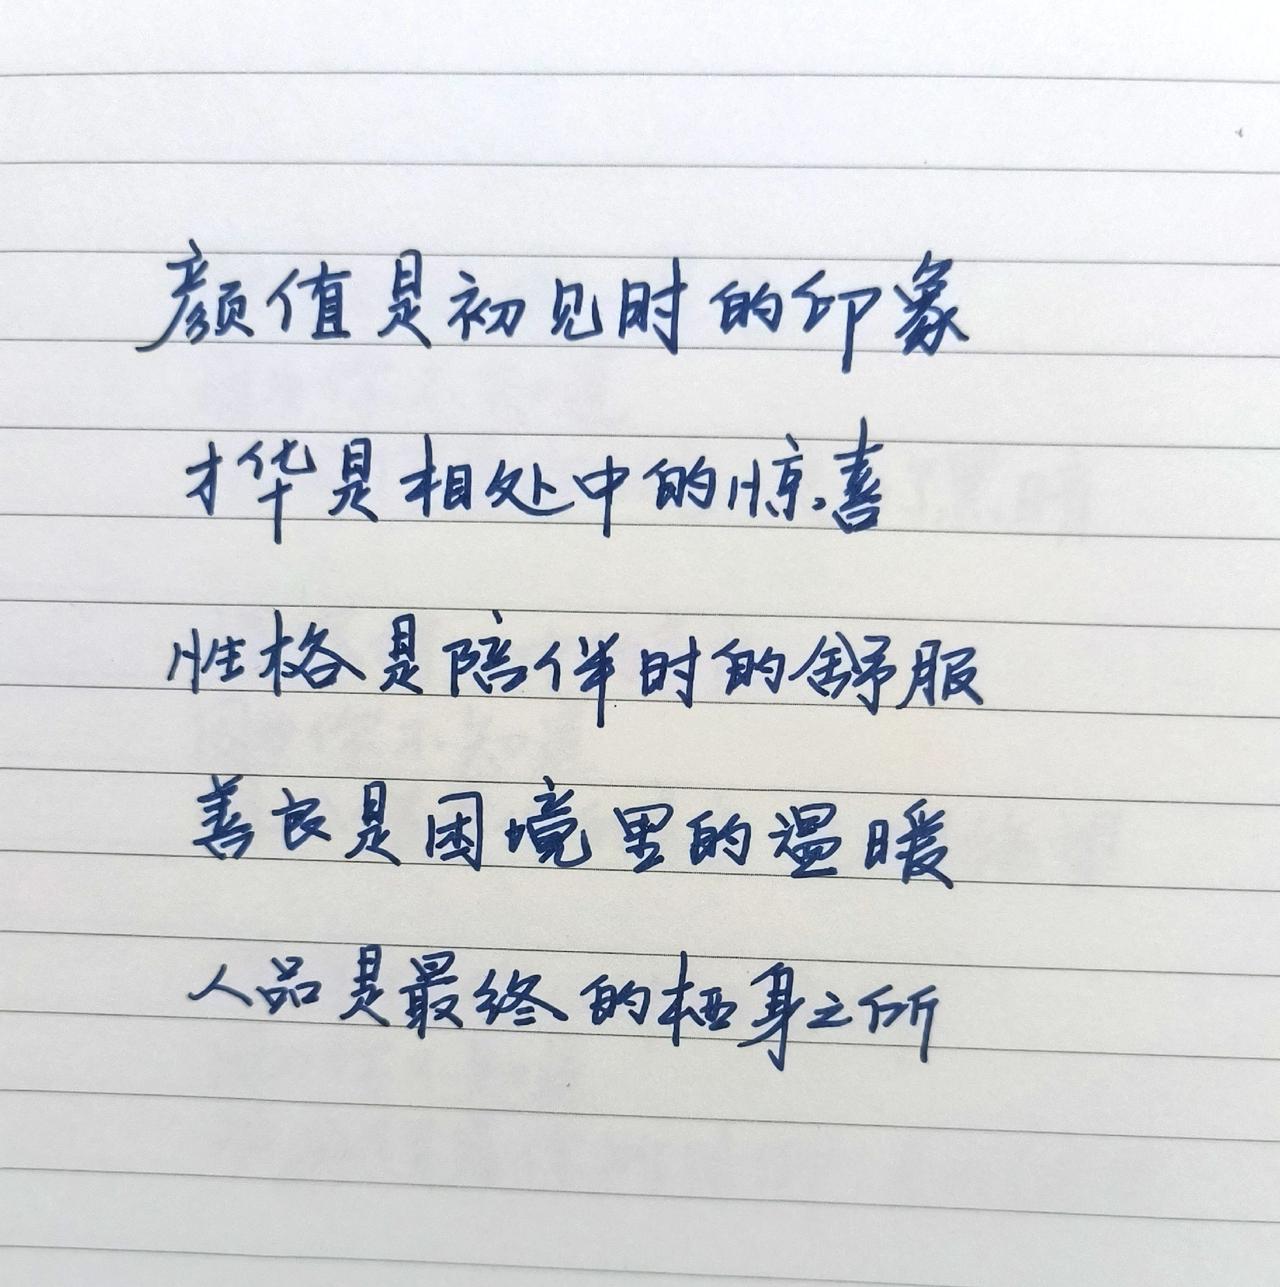 颜值是初见时的印象
才华是相处中的惊喜
性格是陪伴时的舒服
善良是困境里的温暖
人品是最终的栖身之所